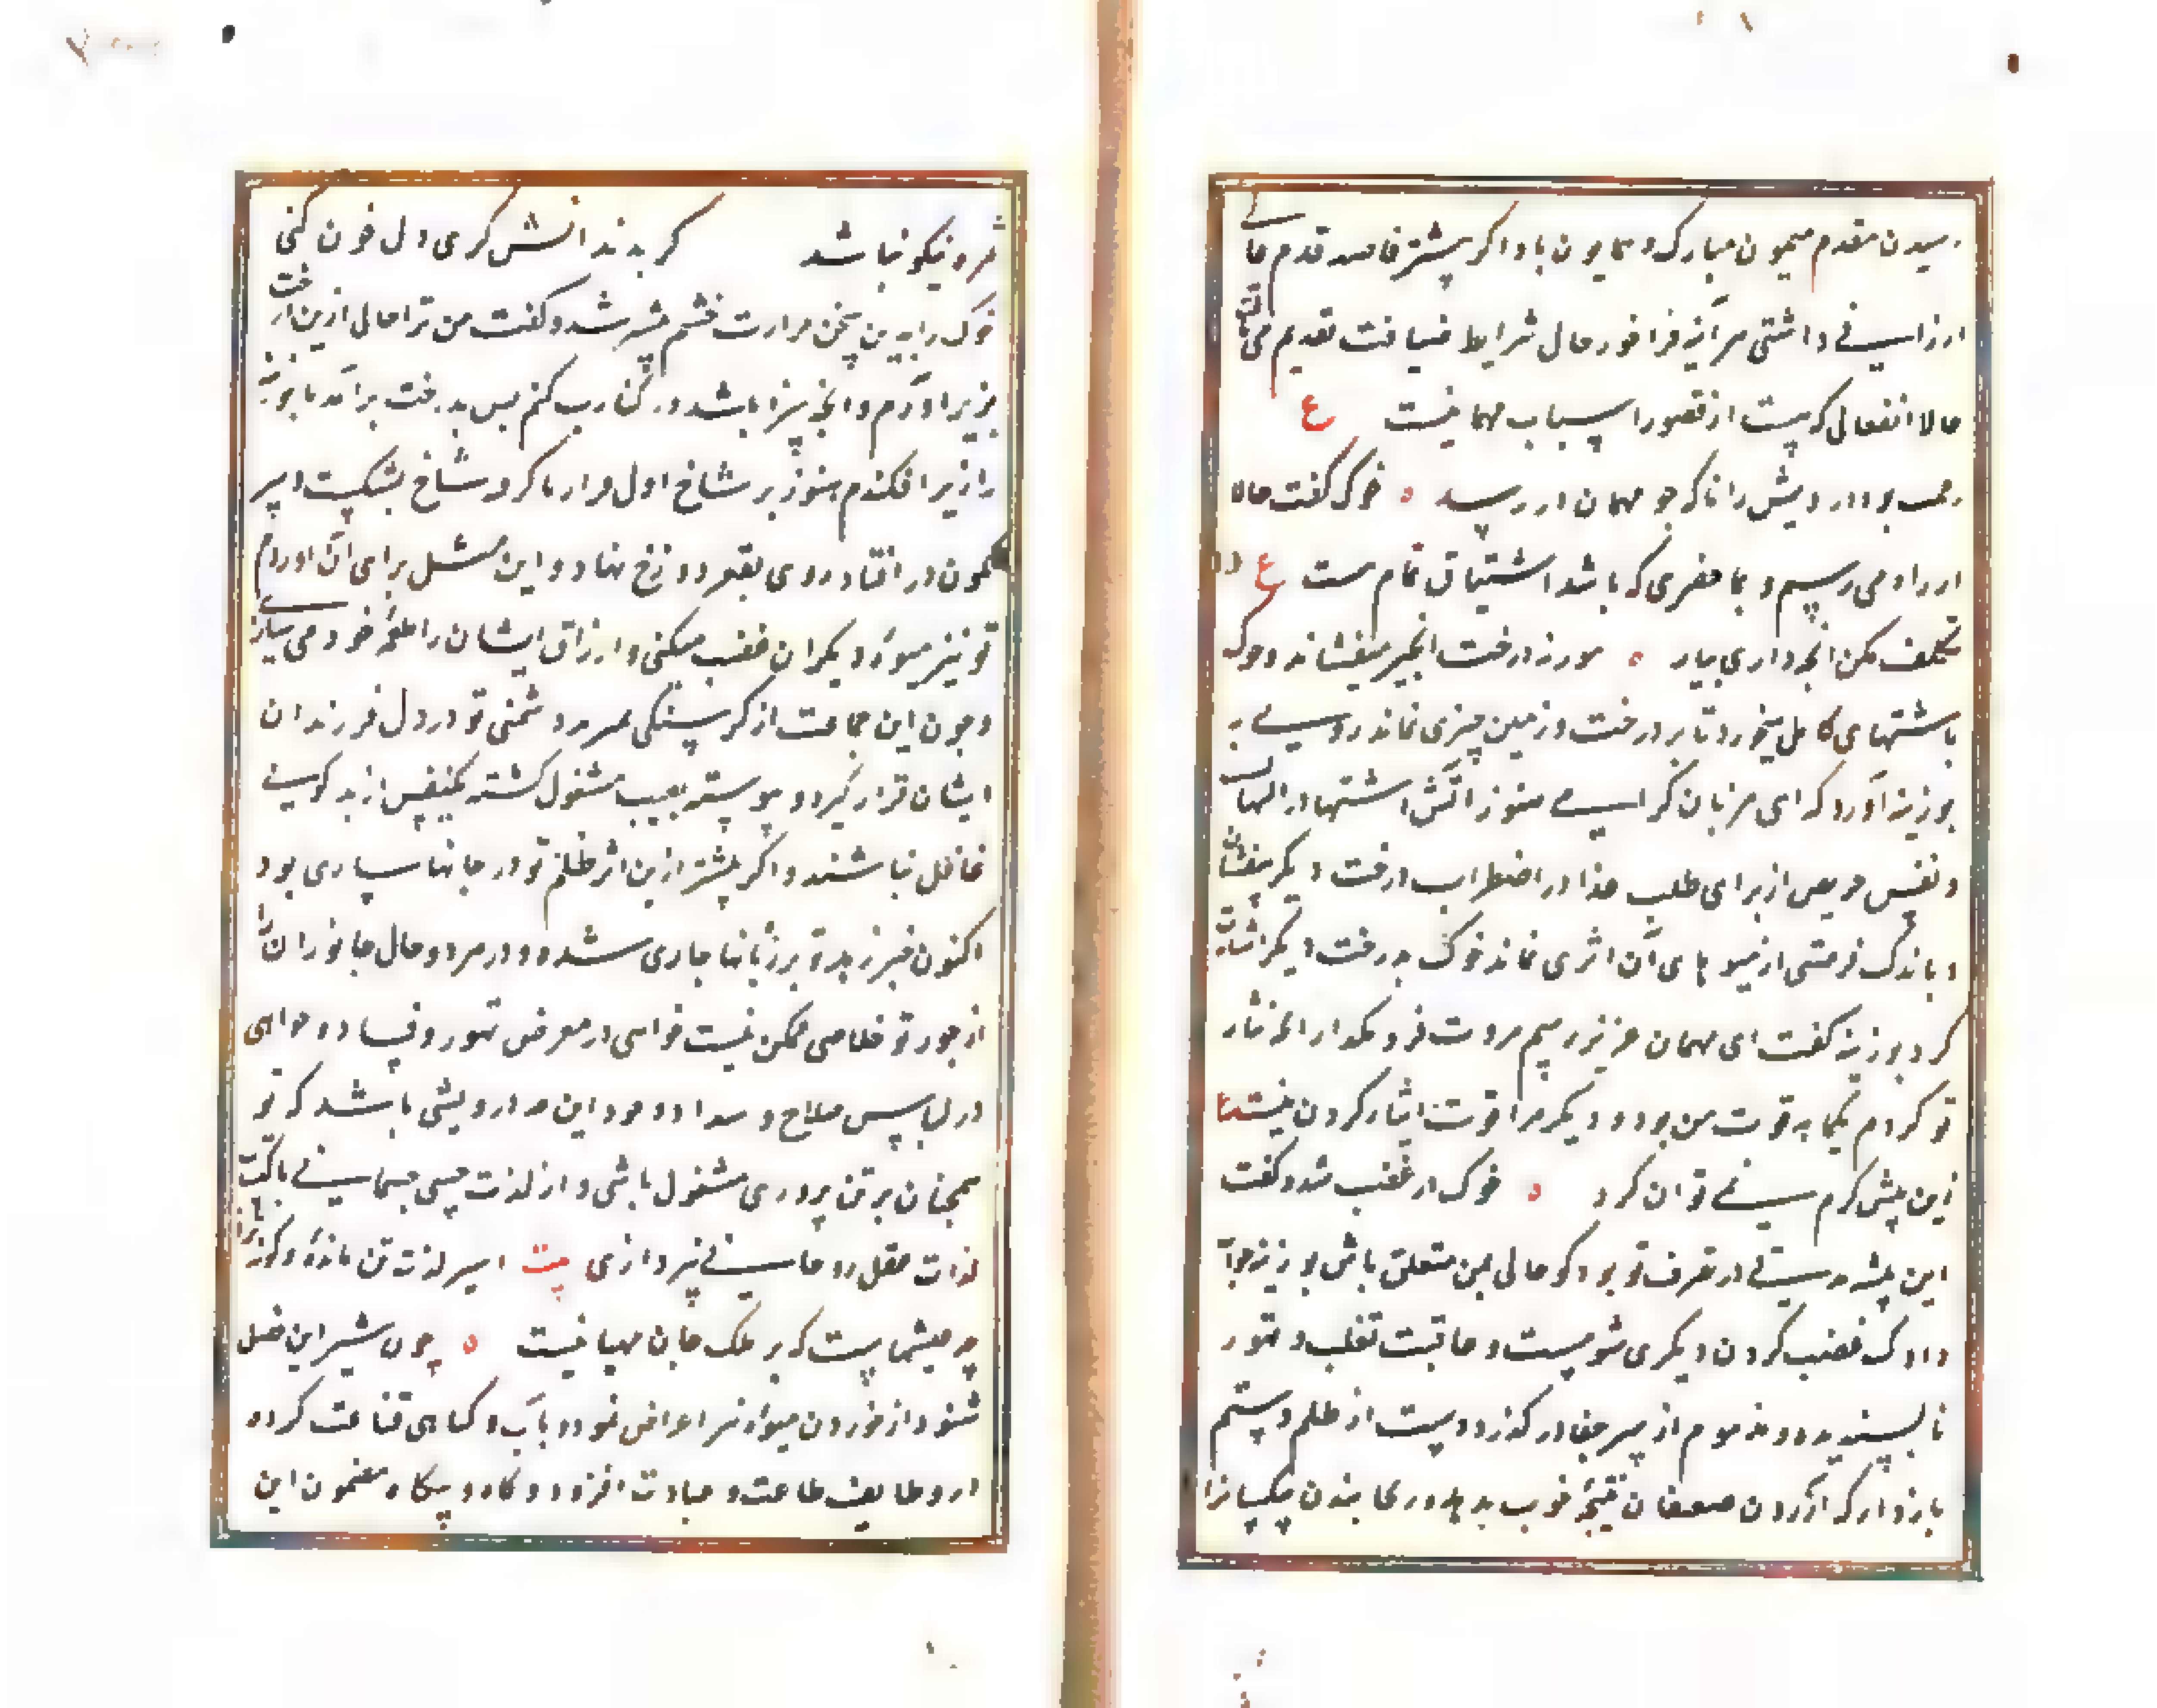 رسیدن مقدم میمون مبارک و همایون باد اگر پیشتر قاصد قدم حالی
ارزانی داشتی هرآینه فراخور حال شرایط ضیافت تقدیم می یافت
حالا انفعالی که هست از قصور اسباب مهمانیست ع
رحمت بود درویش را ناگه چو مهمان در رسد ه خوک گفت حالا
از راه می رسیم و بما حضری که باشد اشتیاق تمام هست ع
تکلف مکن انچه داری بیار ه بوزنه درخت انجیر میفشاند و خوک
باشتهای کامل میخورد تا بر درخت و زمین چیزی نماند روی به
بوزینه آورد که ای میزبان گرامی هنوز آتش اشتها در التهاب
و نفس حریص از برای طلب غذا در اضطراب درخت دیگر بیفشان
و باندک فرصتی از میوه های آن اثری نماند خوک بدرخت دیگر اشارت
کرد بوزینه گفت ای مهمان عزیز رسم مروت فرو مگذار انچه نثار
تو کردم یکماهه قوت من بود و دیگر مرا قوت ایثار کردن نیست ع
زین بیش کرم نمی توان کرد ه خوک در غضب شد و گفت
این بیشه مدتی در تصرف تو بود گو حالی بمن متعلق باش بوزینه جواب
داد که غصب کردن دیگری شومست و عاقبت تغلب و تهور
ناپسندیده و مذموم از سر جفا در گذر و دست از ظلم و ستم
باز دار که آزردن ضعیفان نتیجه خوب ندهد و رنجانیدن بیکسان را
ثمره نیکو نباشد گر بدندان ش گری دل خون کنی
خوک را بدین سخن حرارت خشم بیشتر شد و گفت من ترا حالی ازین درخت
بزیر آورم و انچه سزا باشد در کنارت کنم پس بدرخت برآمد تا بوزنه
را زیر افکند هنوز بر شاخ اول قرار ناکرده شاخ بشکست و سر
نگون در افتاد و روی بقعر دوزخ نهاد و این مثل برای آن آوردم
تو نیز میوه دیگران غصب میکنی و ارزاق ایشان را طعمه خود می سازی
و چون این جماعت از گرسنگی بمیرند دشمنی تو در دل فرزندان
ایشان قرار گیرد و پیوسته بعیب مشغول گشته یکنفس از بد گویی
غافل نباشند و اگر پیشتر ازین اثر ظلم تو در جانها ساری بود
اکنون خبر زهد تو بر زبانها جاری شد و در هر دو حال جانوران را
از جور تو خلاصی ممکن نیست خواهی در معرض تهور و فساد و خواهی
در لباس صلاح و سداد و خود این چه درویشی باشد که تو
همچنان بر تن پروری مشغول باشی و از لذت حسی جسمانی باکتساب
لذات عقل روحانی نپردازی بیت اسیر لذت تن مانده و گرنه ترا
چه عیشهاست که بر ملک جان مهیا نیست ه چون شیر این فصل
شنود از خوردن میوه نیز اعراض نمود و بآب و گیاهی قناعت کرده
در وظایف طاعت و عبادت افزود و گاه و بیگاه مضمون این